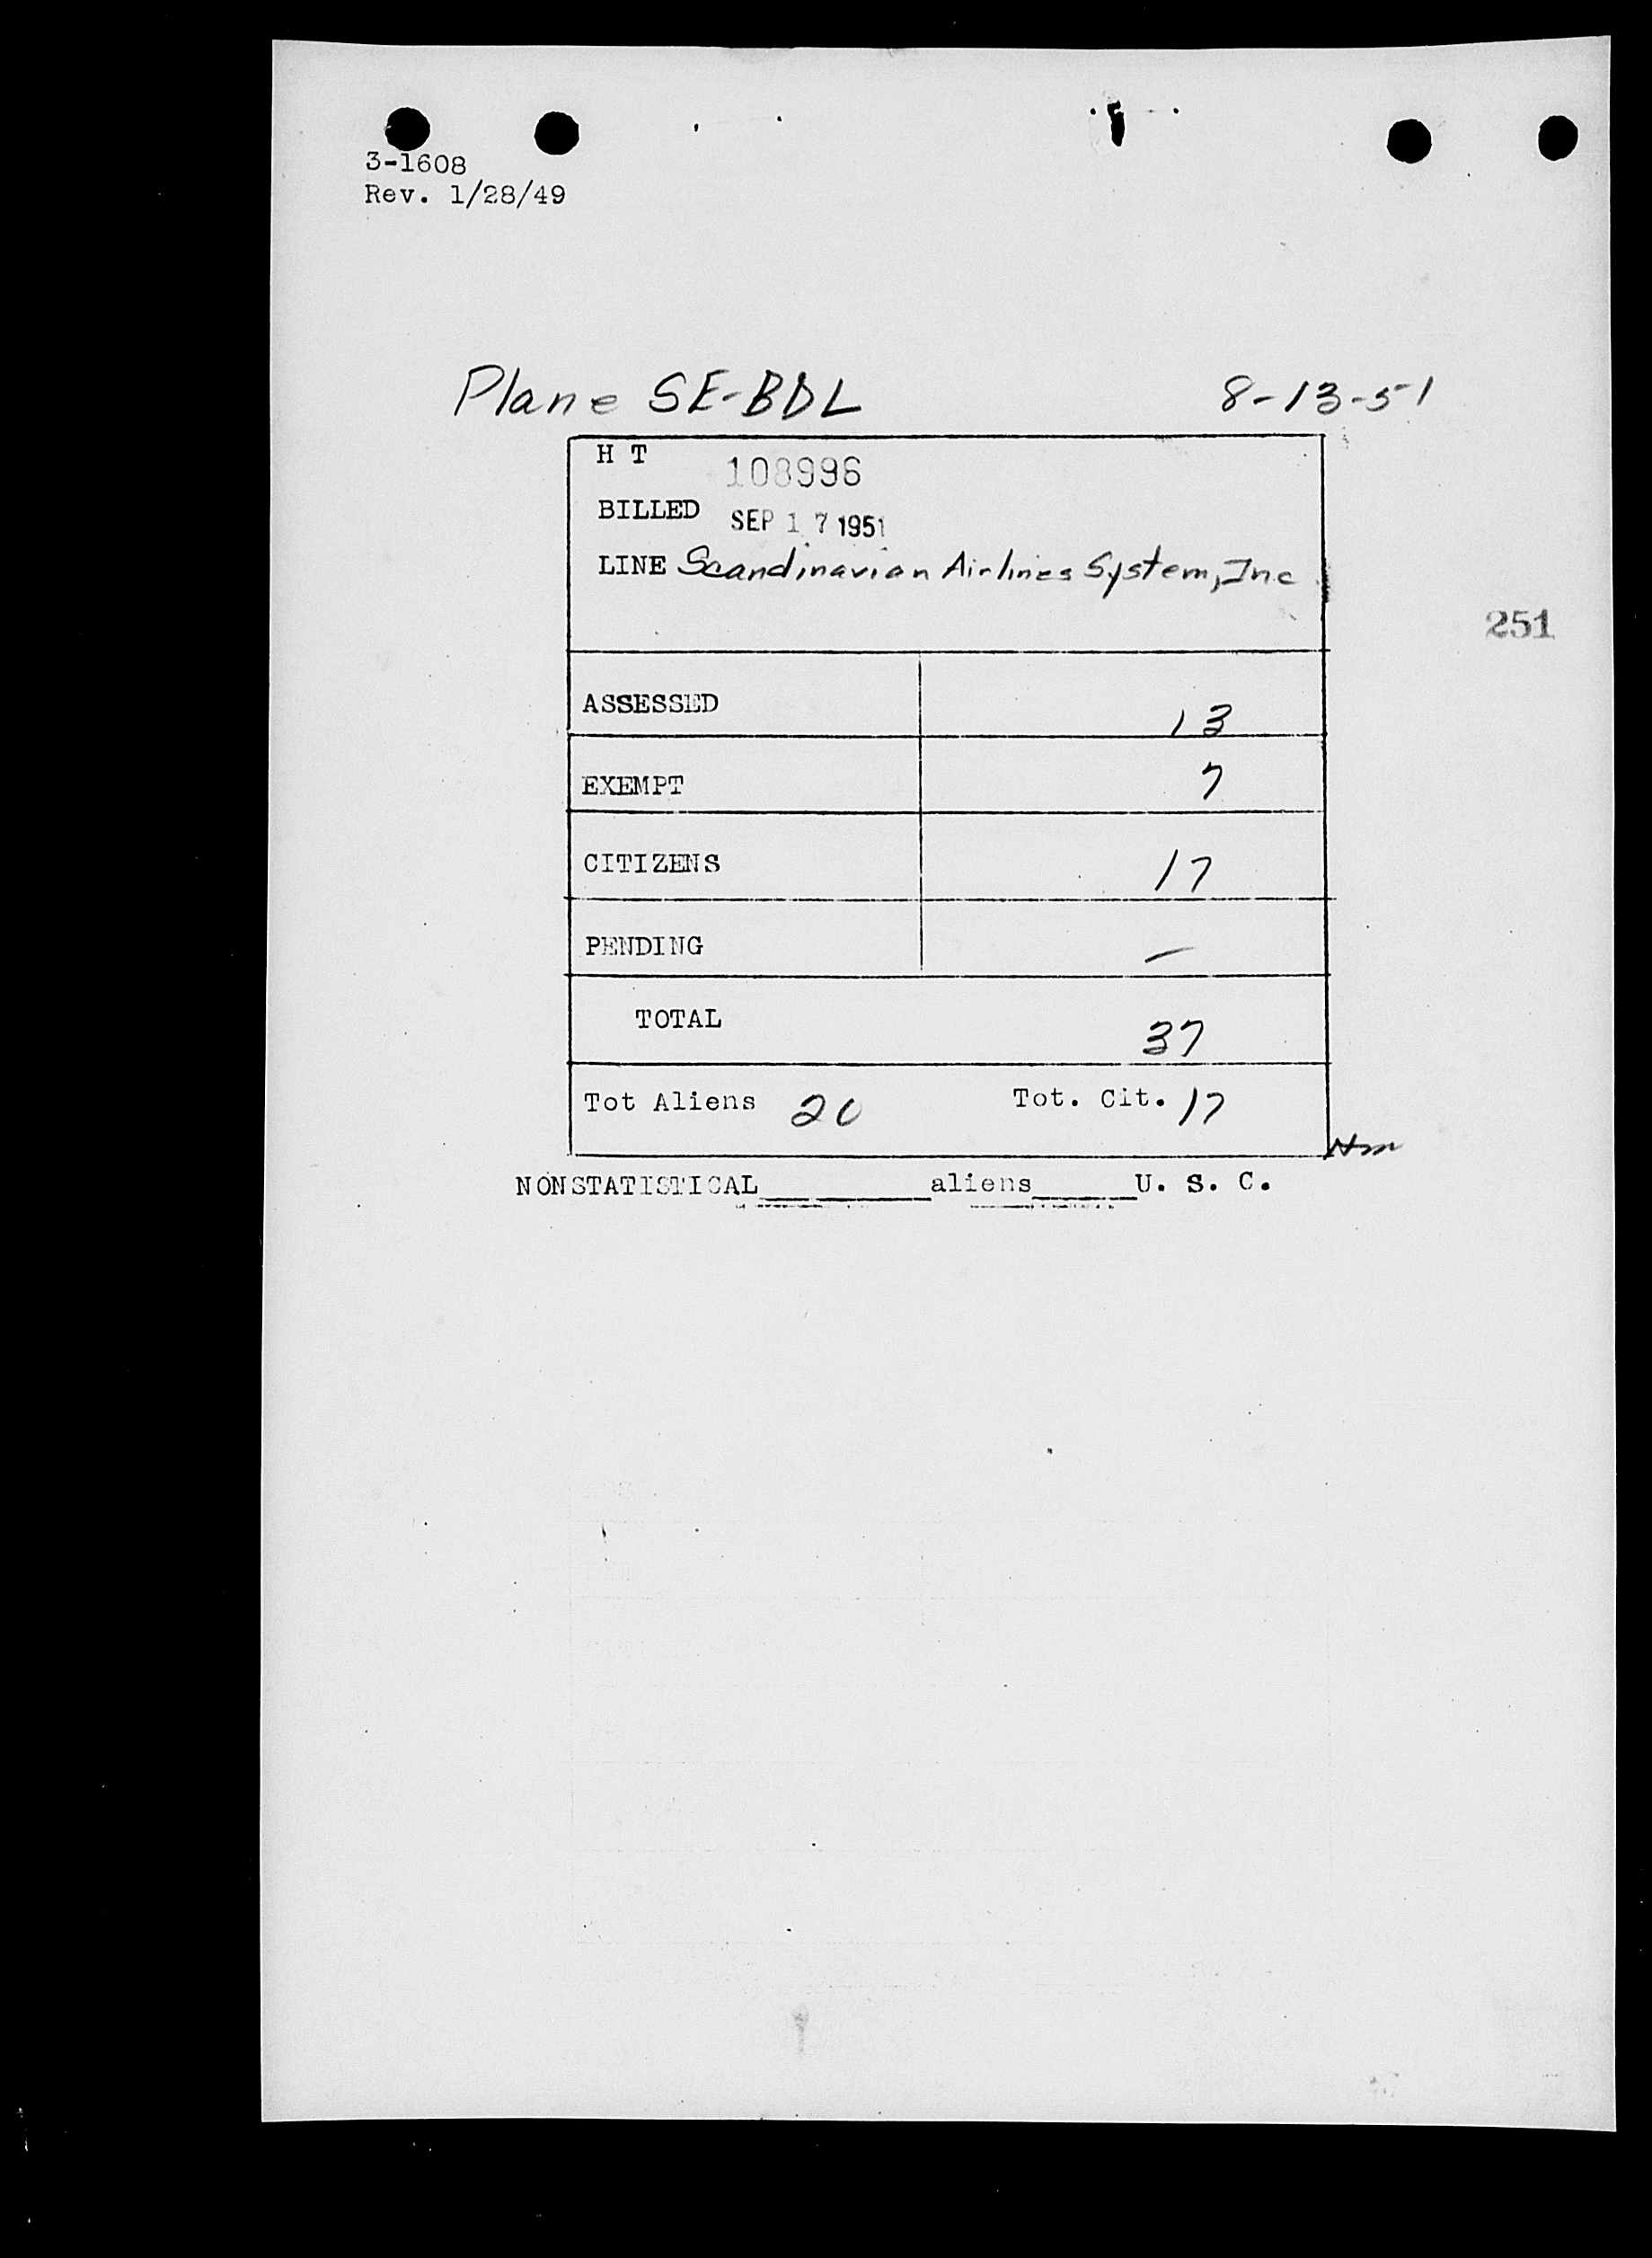 3-1608
Rev. 1/28/49
Plane SE-BDL 8-13-51
H T 108996
BILLED SEP 17 1951
LINE Scandinavian Airlines System, Inc
251
ASSESSED 13
EXEMPT 7
CITIZENS 17
PENDING —
TOTAL 37
Tot Aliens 20 Tot. Cit. 17
NONSTATISTICAL__________aliens______U. S. C.